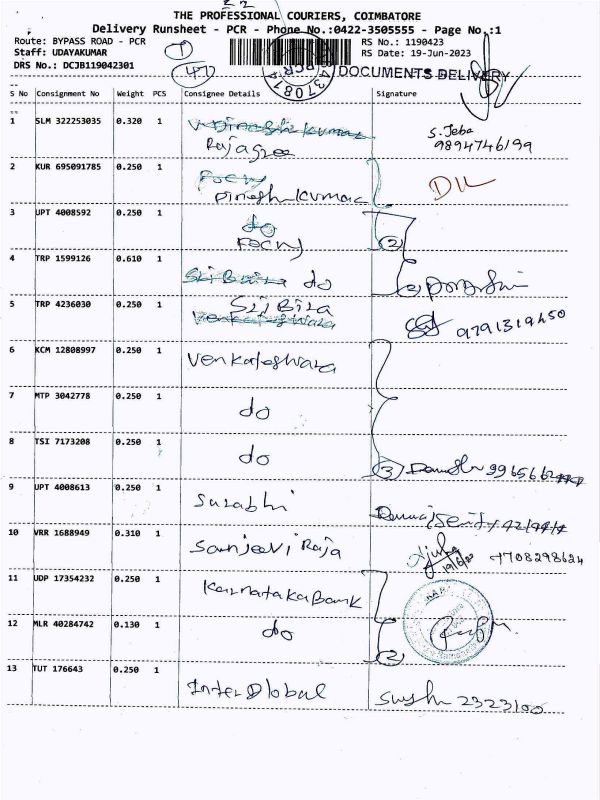 THE PROFESSIONAL COURIERS, COIMBATORE
Delivery Runsheet - PCR - Phone No.:0422-3505555 - Page No.:1
Route: BYPASS ROAD - PCR RS No.: 1190423
Staff: UDAYAKUMAR RS Date: 19-Jun-2023
DRS No.: DCJB119042301 DOCUMENTS DELIVERY
S No Consignment No Weight PCS Consignee Details Signature
1 SLM 322253035 0.320 1 S. Jeba
Rajagree 9894746199
2 KUR 695091785 0.250 1
Dinesh kumar
3 UPT 4008592 0.250 1 do
Focuj 2
4 TRP 1599126 0.610 1 Sri Baira do 2
5 TRP 4236030 0.250 1 Sri Bira
Venkateswara 9791319650
6 KCM 12808997 0.250 1 Venkateshwara
7 MTP 3042778 0.250 1 do
8 TSI 7173208 0.250 1 do 3
9 UPT 4008613 0.250 1 Surabhi
10 VRR 1688949 0.310 1 Sanjeevi Raja 19/6/23 7708298624
11 UDP 17354232 0.250 1 Karnataka Bank
12 MLR 40284742 0.130 1 do 2
13 TUT 176643 0.250 1 Inter Global 2323100